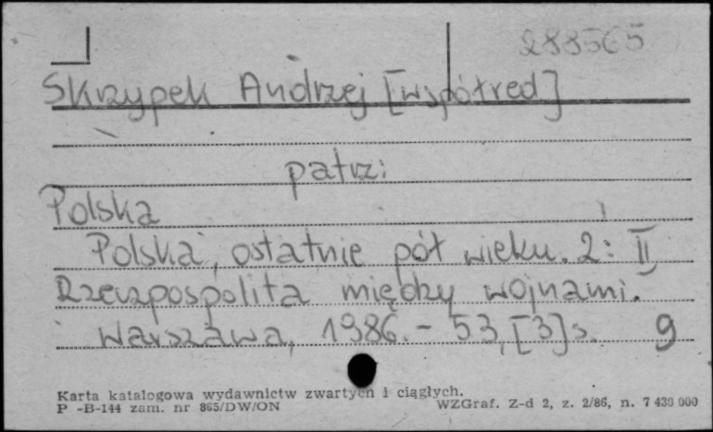 288565
Skrzypek Andrzej [współred]
patrz:
Polska
Polska, ostatnie pół wieku. 2: II
Rzeczpospolita między wojnami.
Warszawa, 1986. - 53, [3] s. 9
Karta katalogowa wydawnictw zwartych i ciągłych.
P -B-144 zam. nr 865/DW/ON WZGraf. Z-d 2, z. 2/86, n. 7 430 000